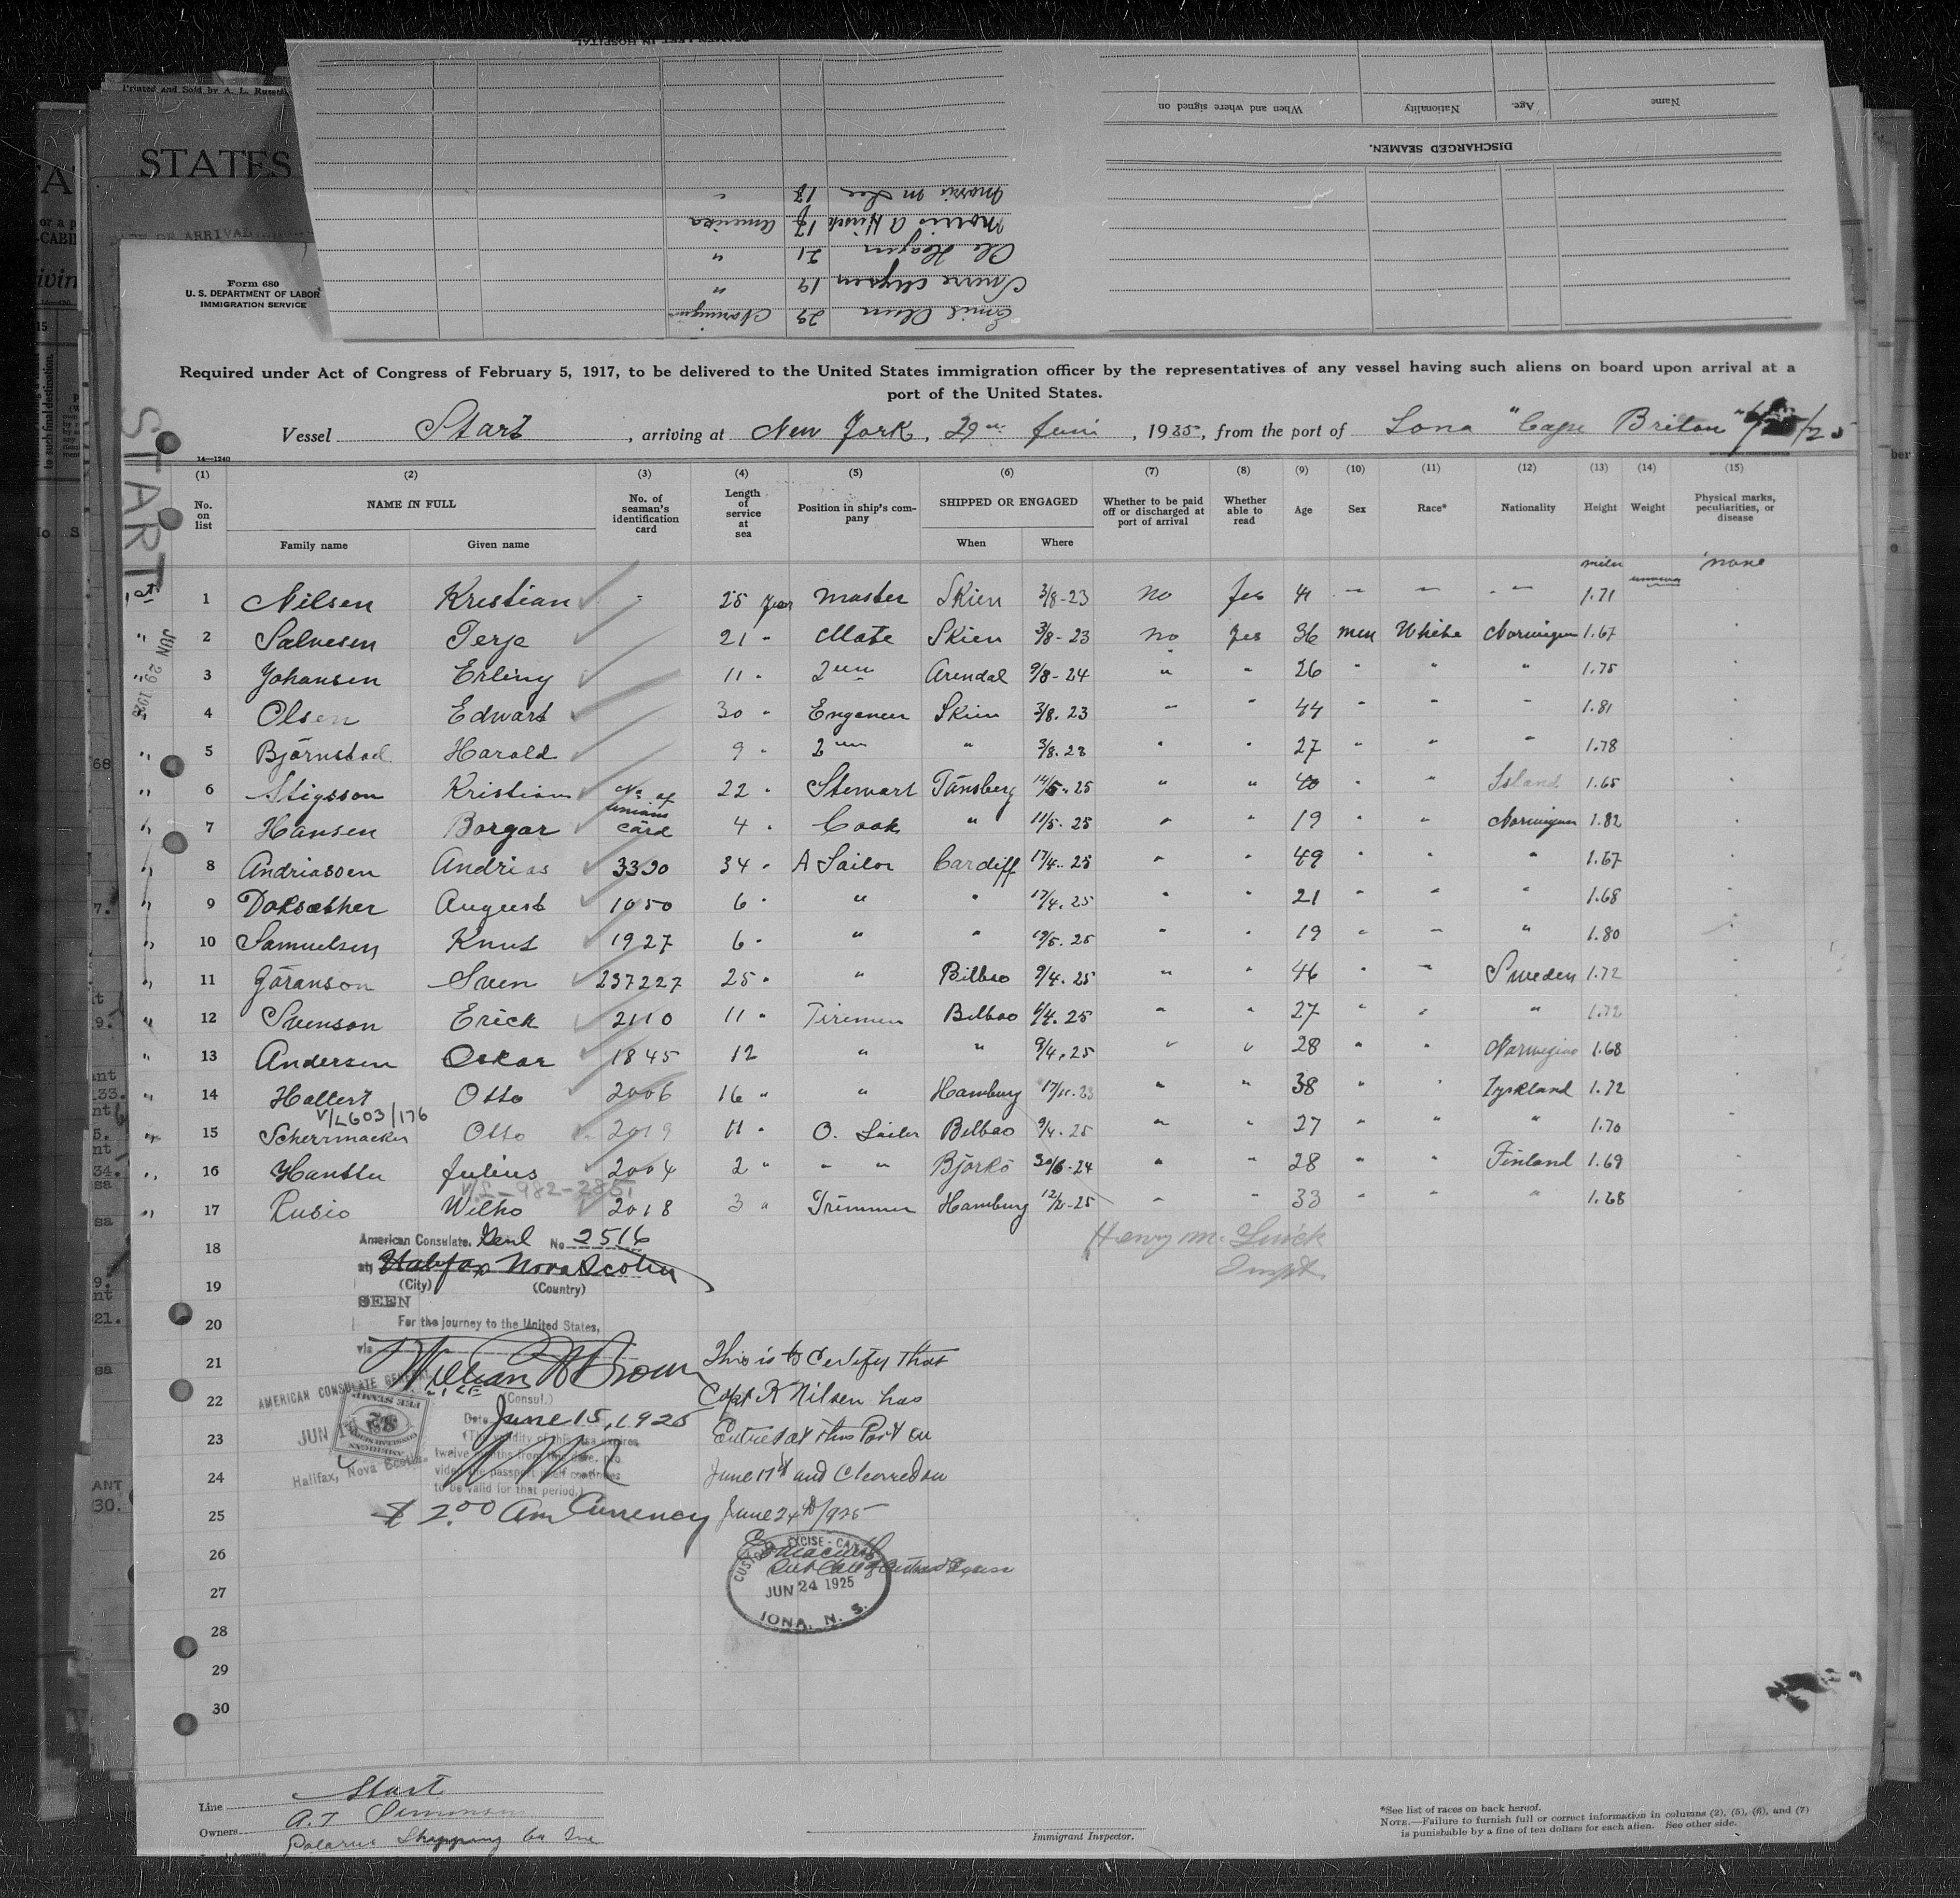 SEAMEN LEFT IN HOSPITAL
Name Age. Nationality When and where signed on
DISCHARGED SEAMEN.
Morris M Lee 18 "
Morris A Hirsch 17 Amerika
Ole Hagen 21 "
19 "
Emil Olsen 29 Norwegian
Printed and Sold by A. L. Russell,
STATES
DATE OF ARRIVAL
Form 680
U. S. DEPARTMENT OF LABOR
IMMIGRATION SERVICE
Required under Act of Congress of February 5, 1917, to be delivered to the United States immigration officer by the representatives of any vessel having such aliens on board upon arrival at a
port of the United States.
Vessel Start, arriving at New York, 29 Juni, 1925, from the port of Iona "Cape Briton"
14—1240
START
JUN 29 1925
(1) (2) (3) (4) (5) (6) (7) (8) (9) (10) (11) (12) (13) (14) (15)
No. on list NAME IN FULL No. of seaman's identification card Length of service at sea Position in ship's company SHIPPED OR ENGAGED Whether to be paid off or discharged at port of arrival Whether able to read Age Sex Race* Nationality Height Weight Physical marks, peculiarities, or disease
Family name Given name When Where
meter none
1 Nilsen Kristian - 25 year Master Skien 3/8-23 no yes 41 — — — 1.71
2 Salvesen Terje 21 " Mate Skien 3/8-23 no yes 36 men White Norwigen 1.67 "
3 Johansen Erling 11 " 2 Arendal 9/8-24 " " 26 " " " 1.75 "
4 Olsen Edwart 30 " Engeneer Skien 3/8.23 " " 44 " " " 1.81 "
5 Björnstad Harald 9 " 2 " 3/8.23 " " 27 " " " 1.78 "
6 Stigsson Kristian No of 22 " Stewart Tönsberg 14/5-25 " " 40 " " Island 1.65 "
7 Hansen Borgar unions card 4 " Cook " 11/5-25 " " 19 " " Norwigen 1.82 "
8 Andriassen Andrias 3390 34 " A Sailor Cardiff 17/4-25 " " 49 " " " 1.67 "
9 Doksæther August 1050 6 " " " 17/4.25 " " 21 " " " 1.68
10 Samuelsen Knut 1927 6 " " " 19/5.25 " " 19 " " " 1.80
11 Göranson Sven 237227 25 " " Bilbao 9/4.25 " " 46 " " Sweden 1.72 "
12 Svenson Erick 2110 11 " Firemen Bilbao 9/4.25 " " 27 " " " 1.72 "
13 Andersen Oskar 1845 12 " " 9/4.25 " " 28 " " Norwegian 1.68 "
14 Hallert Otto 2006 16 " " Hamburg 17/11.23 " " 38 " " Tyskland 1.72
V/L603/176
15 Scherrmacker Otto 2019 11 " O. Sailer Bilbao 9/4.25 " " 27 " " " 1.70 "
16 Hanttu Julius 2004 2 " " " Björkö 30/6-24 " " 28 " " Finland 1.69 "
V/L-982-2851
17 Rusio Wilho 2018 3 " Trimmer Hamburg 12/2-25 " " 33 " " " 1.68 "
18
19
20
21
22
23
24
25
26
27
28
29
30
American Consulate. Genl No 2516
at Halifax Nova Scotia
(City) (Country)
SEEN
For the journey to the United States,
via
William W Brown
(Consul.)
Date June 15, 1925
(The validity of this visa expires
twelve months from this date, pro
vided the passport itself continues
to be valid for that period.)
AMERICAN CONSULATE GENERAL
FEE STAMP
JUN
Halifax, Nova Scotia
$ 2.00 Am Currency
Henry M.
Inspt.
This is to Certify that
Capt K Nilsen has
Entered at this Port on
June 17th and Cleared on
June 24th/925
CUSTOMS EXCISE - CANADA
JUN 24 1925
IONA, N. S.
Line Start
Owners A. T Simonsen
Polarus Shipping Co Inc
Immigrant Inspector.
*See list of races on back hereof.
NOTE.—Failure to furnish full or correct information in columns (2), (5), (6), and (7)
is punishable by a fine of ten dollars for each alien. See other side.